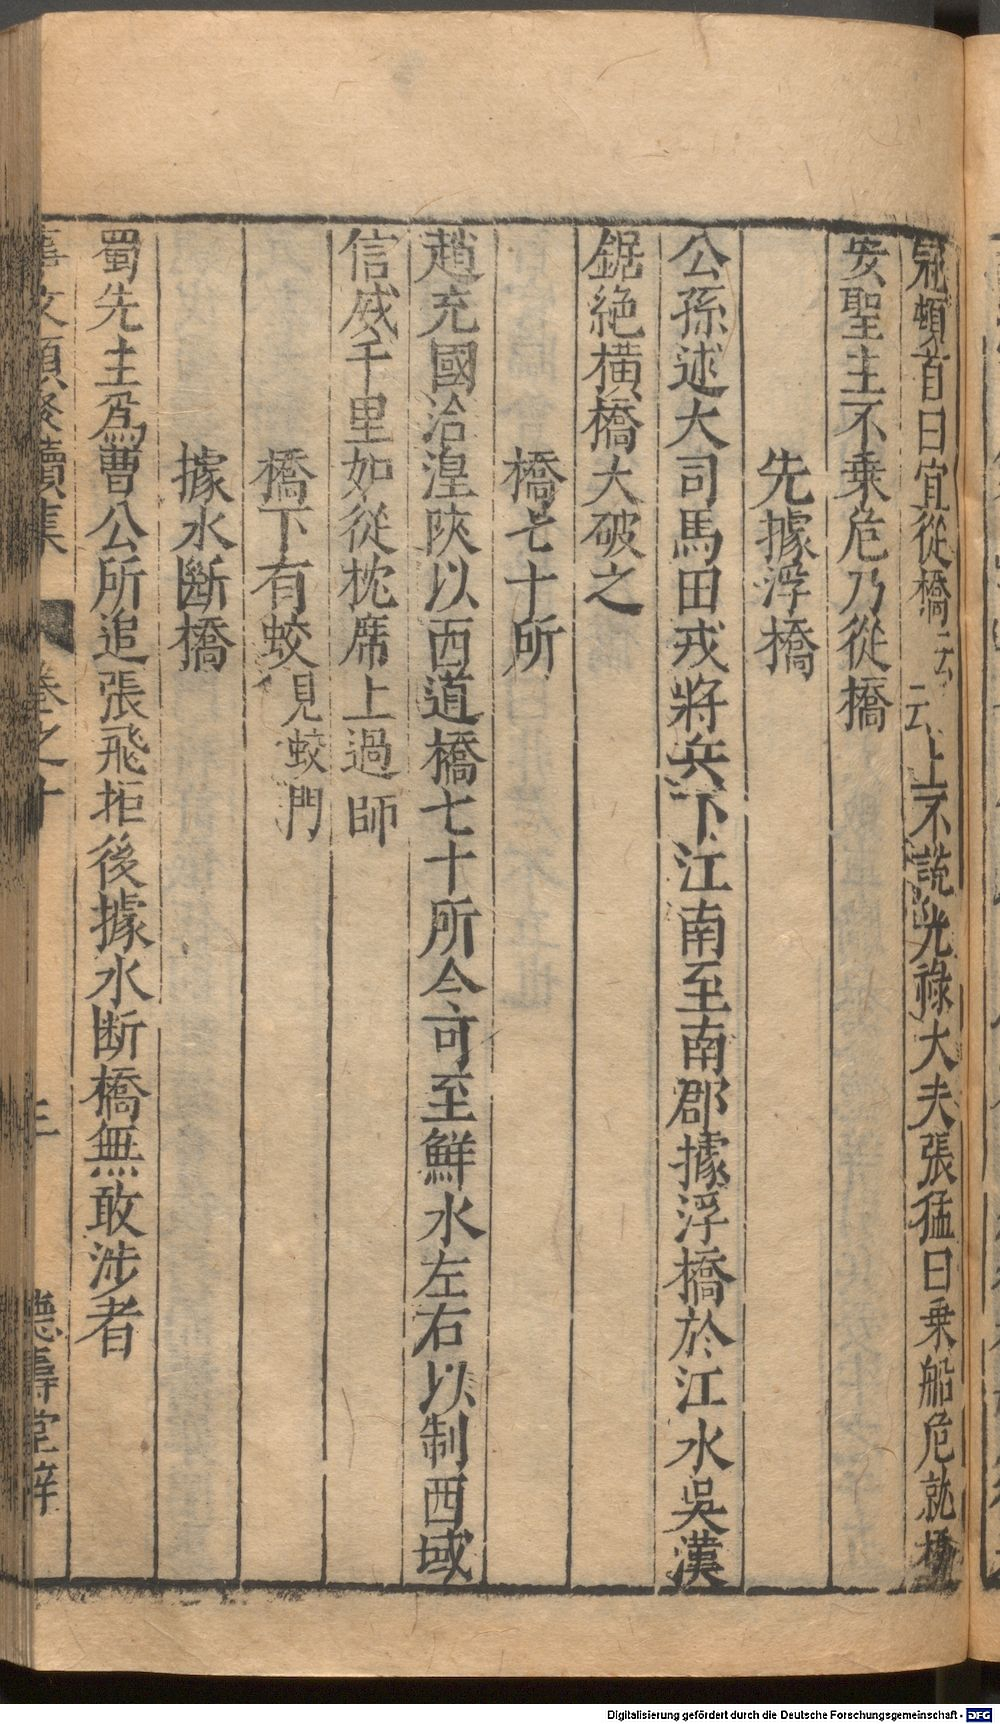 冠頓首曰宜從橋云云上不說光祿大夫張猛曰乗船危就橋
安聖主不乗危乃從橋
先據浮橋
公孫述大司馬田戎將兵下江南至南郡據浮橋於江水吳漢
鋸絶橫橋大破之
橋七十所
趙充國治湟陝以西道橋七十所令可至鮮水左右以制西域
信威千里如從枕席上過師
橋下有蛟見蛟門
據水斷橋
蜀先主爲曹公所追張飛拒後據水断橋無敢涉者
文類聚續集 卷之十 三 德壽堂梓
Digitalisierung gefördert durch die Deutsche Forschungsgemeinschaft - DFG